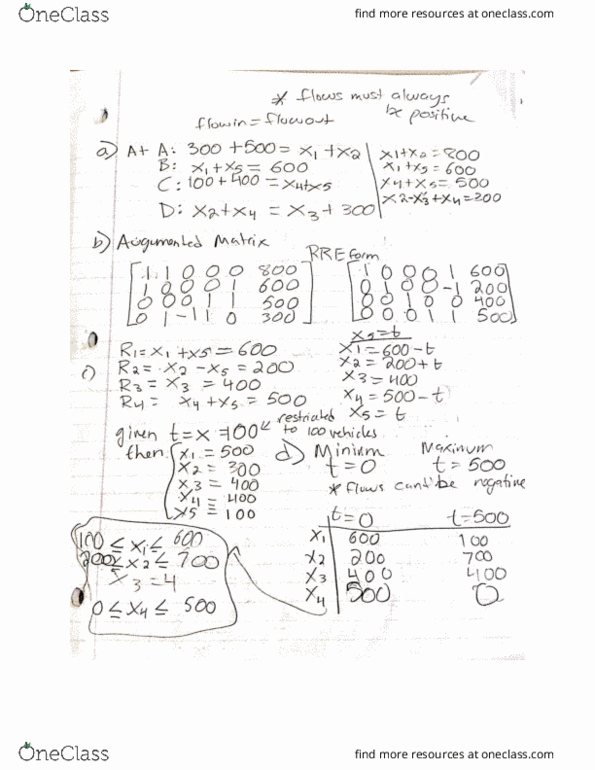 OneClass
find more resources at oneclass.com
* flows must always
be positive
flowin = flowout
a) A+ A: 300 + 500 = x1 + x2 | x1+x2 = 800
B: x1 + x5 = 600 | x1 + x5 = 600
C: 100 + 400 = x4+x5 | x4 + x5 = 500
D: x2 + x4 = x3 + 300 | x2-x3+x4=300
b) Augumented Matrix
RRE form
[1 1 0 0 0 800]
[1 0 0 0 1 600]
[0 0 0 1 1 500]
[0 1 -1 1 0 300]
[1 0 0 0 1 600]
[0 1 0 0 -1 200]
[0 0 1 0 0 400]
[0 0 0 1 1 500]
c)
R1 = x1 + x5 = 600
R2 = x2 - x5 = 200
R3 = x3 = 400
R4 = x4 + x5 = 500
x5 = t
x1 = 600 - t
x2 = 200 + t
x3 = 400
x4 = 500 - t
x5 = t
given t = x = 100 restricted
to 100 vehicles
then
x1 = 500
x2 = 300
x3 = 400
x4 = 400
x5 = 100
d) Minium Maxinum
t = 0 t = 500
* flows cant'be negative
t=0 t=500
x1 600 100
x2 200 700
x3 400 400
x4 500 0
100 ≤ x1 ≤ 600
200 ≤ x2 ≤ 700
x3 = 4
0 ≤ x4 ≤ 500
OneClass
find more resources at oneclass.com